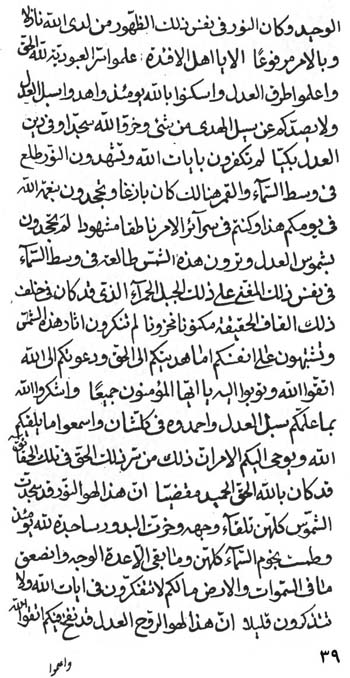 الوحيد وكان النور في نفس ذلك الظهور من لدى الله نازلا
وبالامر مرفوعًا الا يا اهل الافئدة علموا سرّ العبوديّة لله الحق
واعلموا طرق العدل واسكنوا بالله يومئذ واهدوا سبل العدل
ولا يصدّكم عن سبل الهدى من شئ وخرّوا لله سجّدا وفي دين
العدل بكيّا لم تكفرون بايات الله وتشهدون النور طلع
في وسط السّمآء والقمر هنالك كان بازغا وتجحدون بنعمة الله
في يومكم هذا وكنتم في سرآئر الامر ناطقا مشهودا لم تجحدون
بشموس العدل وترون هذه الشمس طالعة في وسط السّمآء
في نفس ذلك المقنع على ذلك الجبل الحمرآء الذي قد كان في خلف
ذلك القاف الحقيقة مكنونا مخزونا لم تنكرون اثار هذه الشمس
وتشتبهون على انفسكم اما هديتكم الى الحق ودعوتكم الى الله
اتقوا الله وتوبوا اليه يا ايّها المؤمنون جميعًا واشكروا الله
بما علّمكم سبل العدل واحمدوه في كلّ شان واسمعوا ما يلقيكم
الله ويوحى اليكم الامر انّ ذلك من سرّ تلك الحق في تلك الحقايق
قد كان بالله الحق الحميد مقضيّا انّ هذا لهو النور قد سجدت
الشموس كلّهن تلقآء وجهه وخرّت البدور ساجدة لله يومئذ
وطمست نجوم السّمآء كلّهن وما بقي الا عدة الوجه وانصعق
ما في السّموات والارض ما لكم لا تتفكّرون في ايات الله ولا
تتذكّرون قليلا انّ هذا لهو الروح العدل قد نفخ فيكم اتقوا الله
٣٩
واعلموا